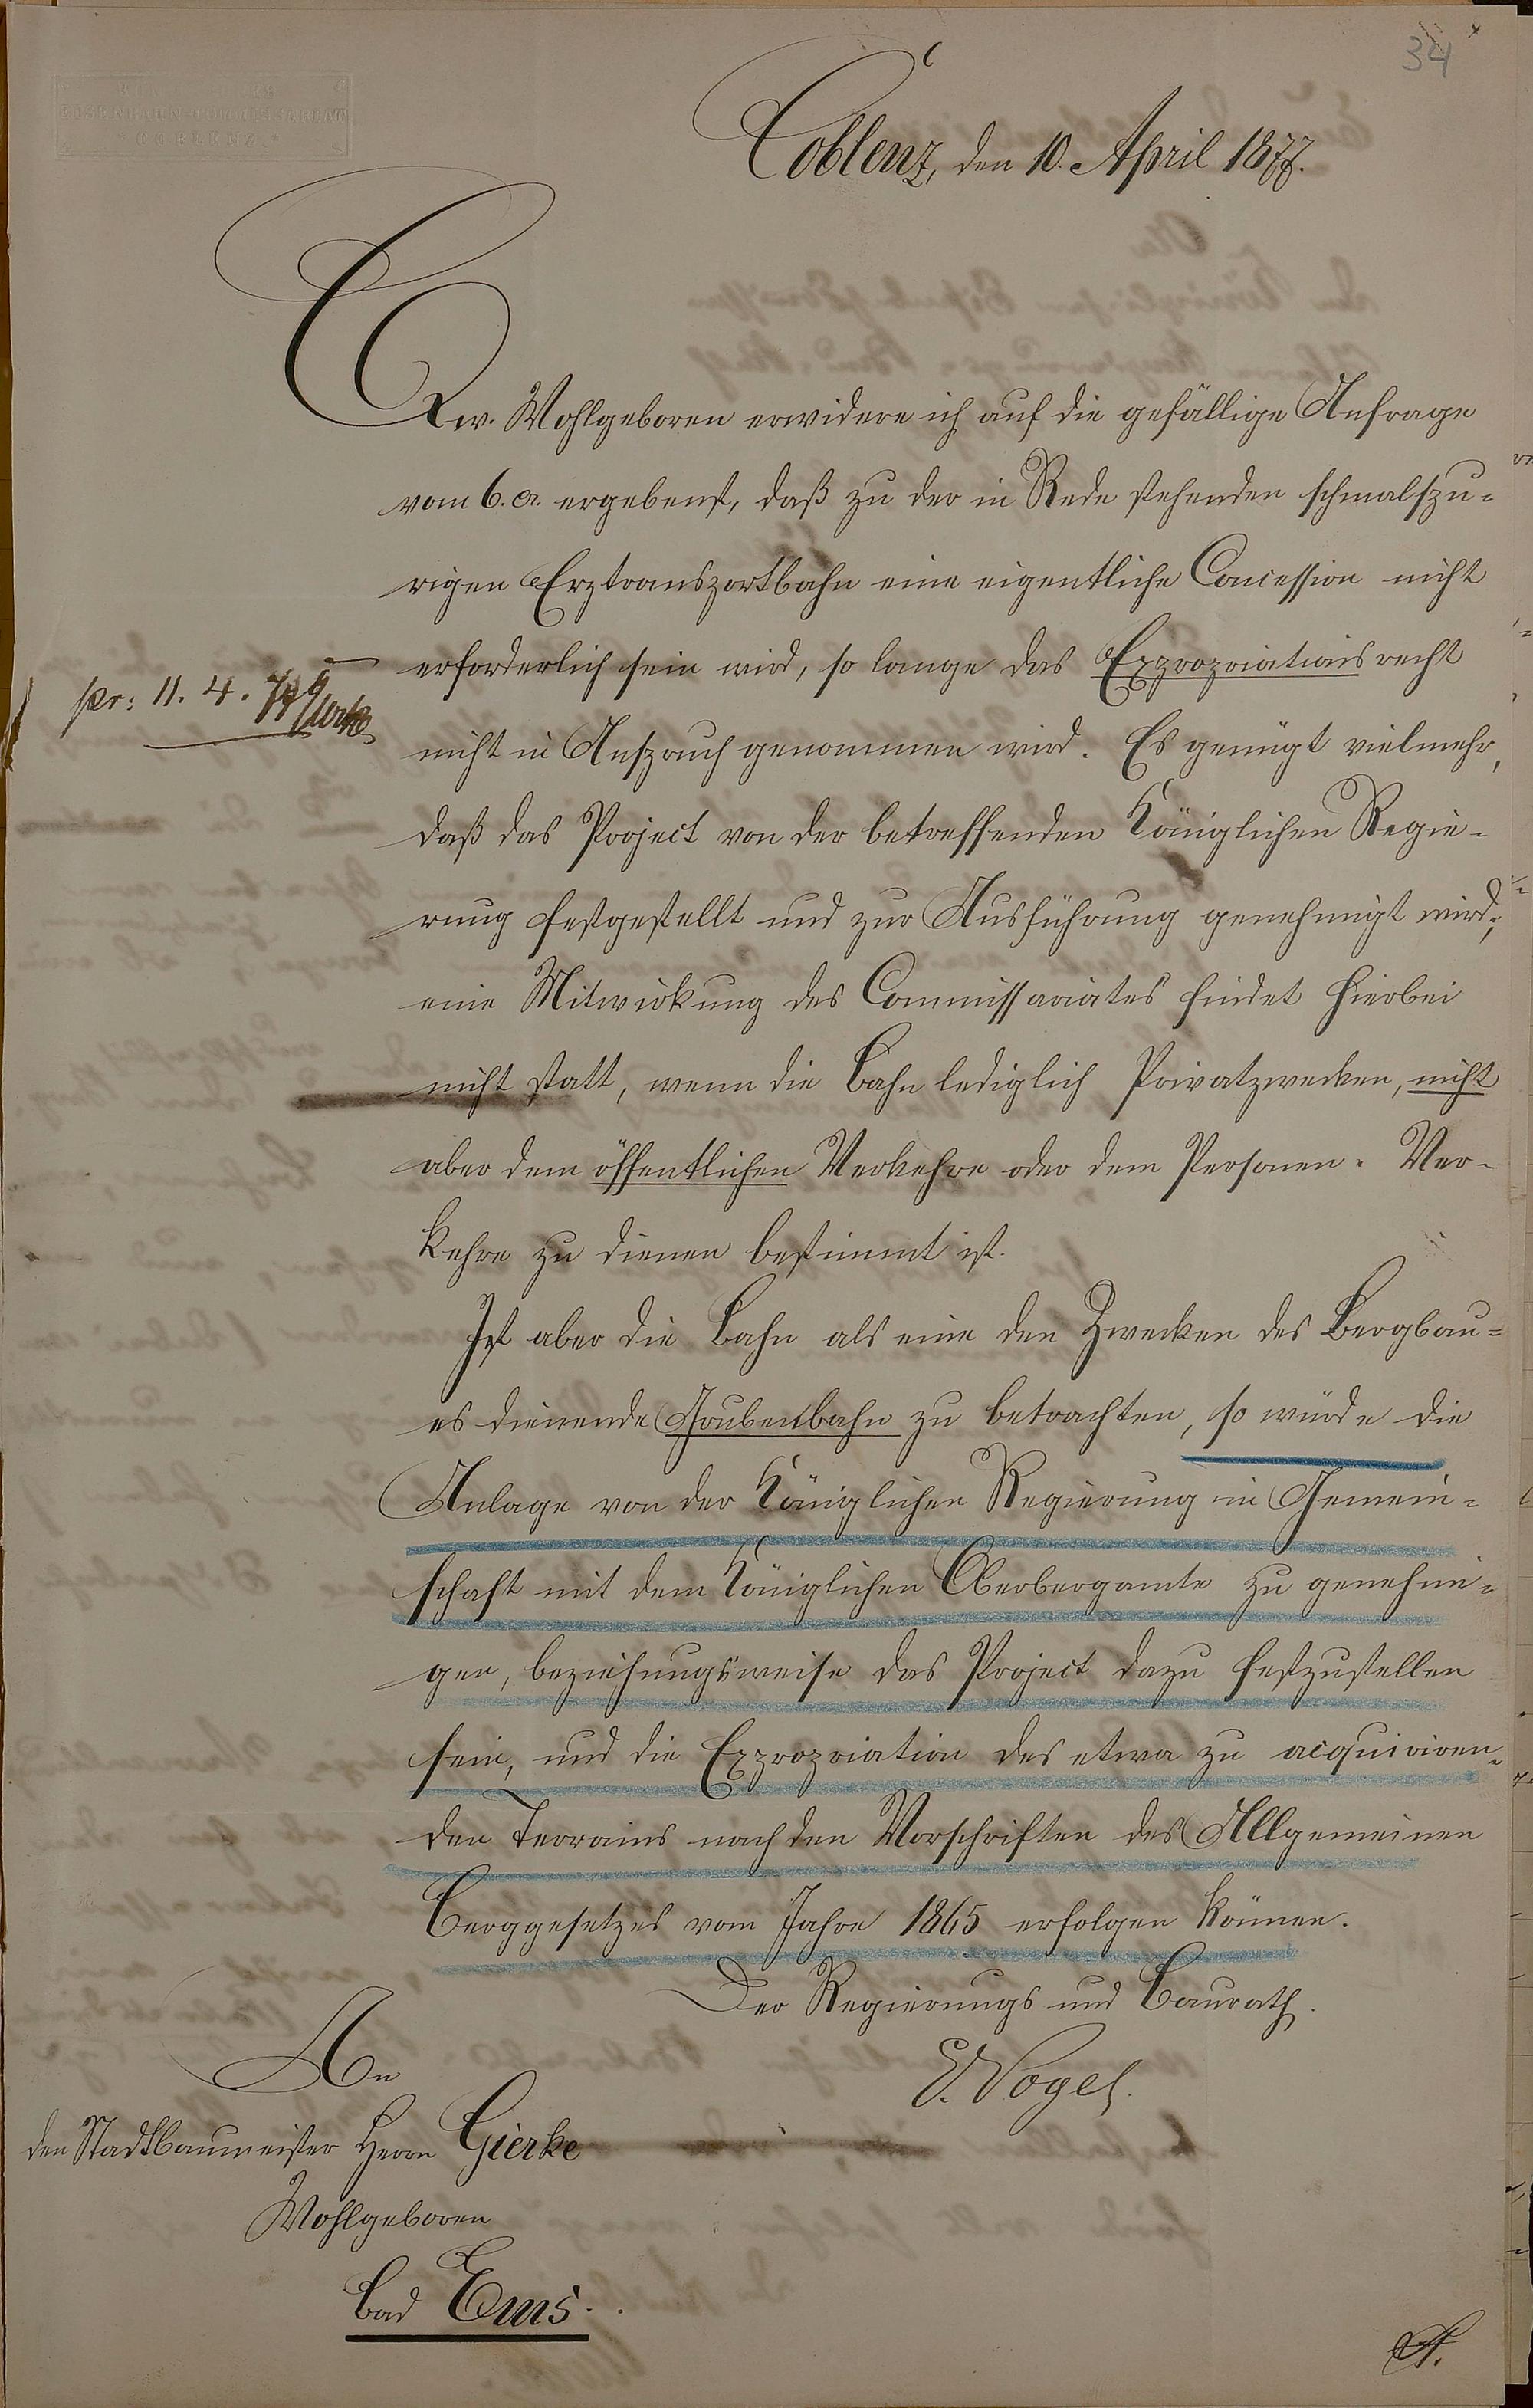 34
Coblenz, den 10. April 1877.
Ew. Wohlgeboren erwidere ich auf die gefällige Anfrage
vom 6. cr. ergebenst, daß zu der in Rede stehenden schmalspu-
rigen Erztransportbahn eine eigentliche Concession nicht
erforderlich sein wird, so lange das Expropriationsrecht
pr: 11. 4. 77 Gierke
nicht in Anspruch genommen wird. Es genügt vielmehr,
daß das Project von der betreffenden Königlichen Regie-
rung festgestellt und zur Ausführung genehmigt wird;
eine Mitwirkung des Commissariates findet hierbei
nicht statt, wenn die Bahn lediglich Privatzwecken, nicht
aber dem öffentlichen Verkehre oder dem Personen-Ver-
kehre zu dienen bestimmt ist.
Ist aber die Bahn als eine den Zwecken des Bergbau-
es dienende Grubenbahn zu betrachten, so würde die
Anlage von der Königlichen Regierung in Gemein-
schaft mit dem Königlichen Oberbergamte zu genehmi-
gen, beziehungsweise das Project dazu festzustellen
sein, und die Expropriation des etwa zu acquiriren-
den Terrains nach den Vorschriften des Allgemeinen
Berggesetzes vom Jahre 1865 erfolgen können.
Der Regierungs und Baurath.
E. Vogel.
An
den Stadtbaumeister Herrn Gierke
Wohlgeboren
Bad Ems.